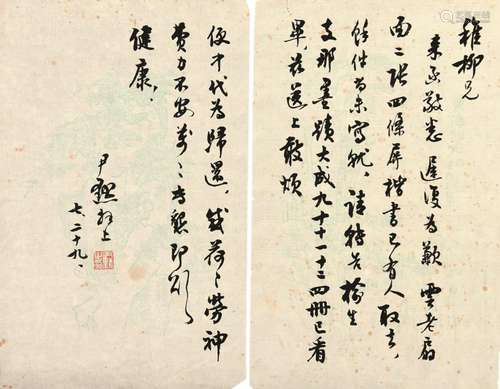 稚柳兄
来函敬悉 遲復为歉 雲老扇
面二張四條屏楷書已有人取去,
餘件尚未寫就,請轉告榆生
支那墨蹟大成九十十一十二四冊已看
畢,茲送上敢煩
便中代为歸還,感荷々勞神
費力不安萬々專懇即頌
健康,
尹默拜上
七、二十九、